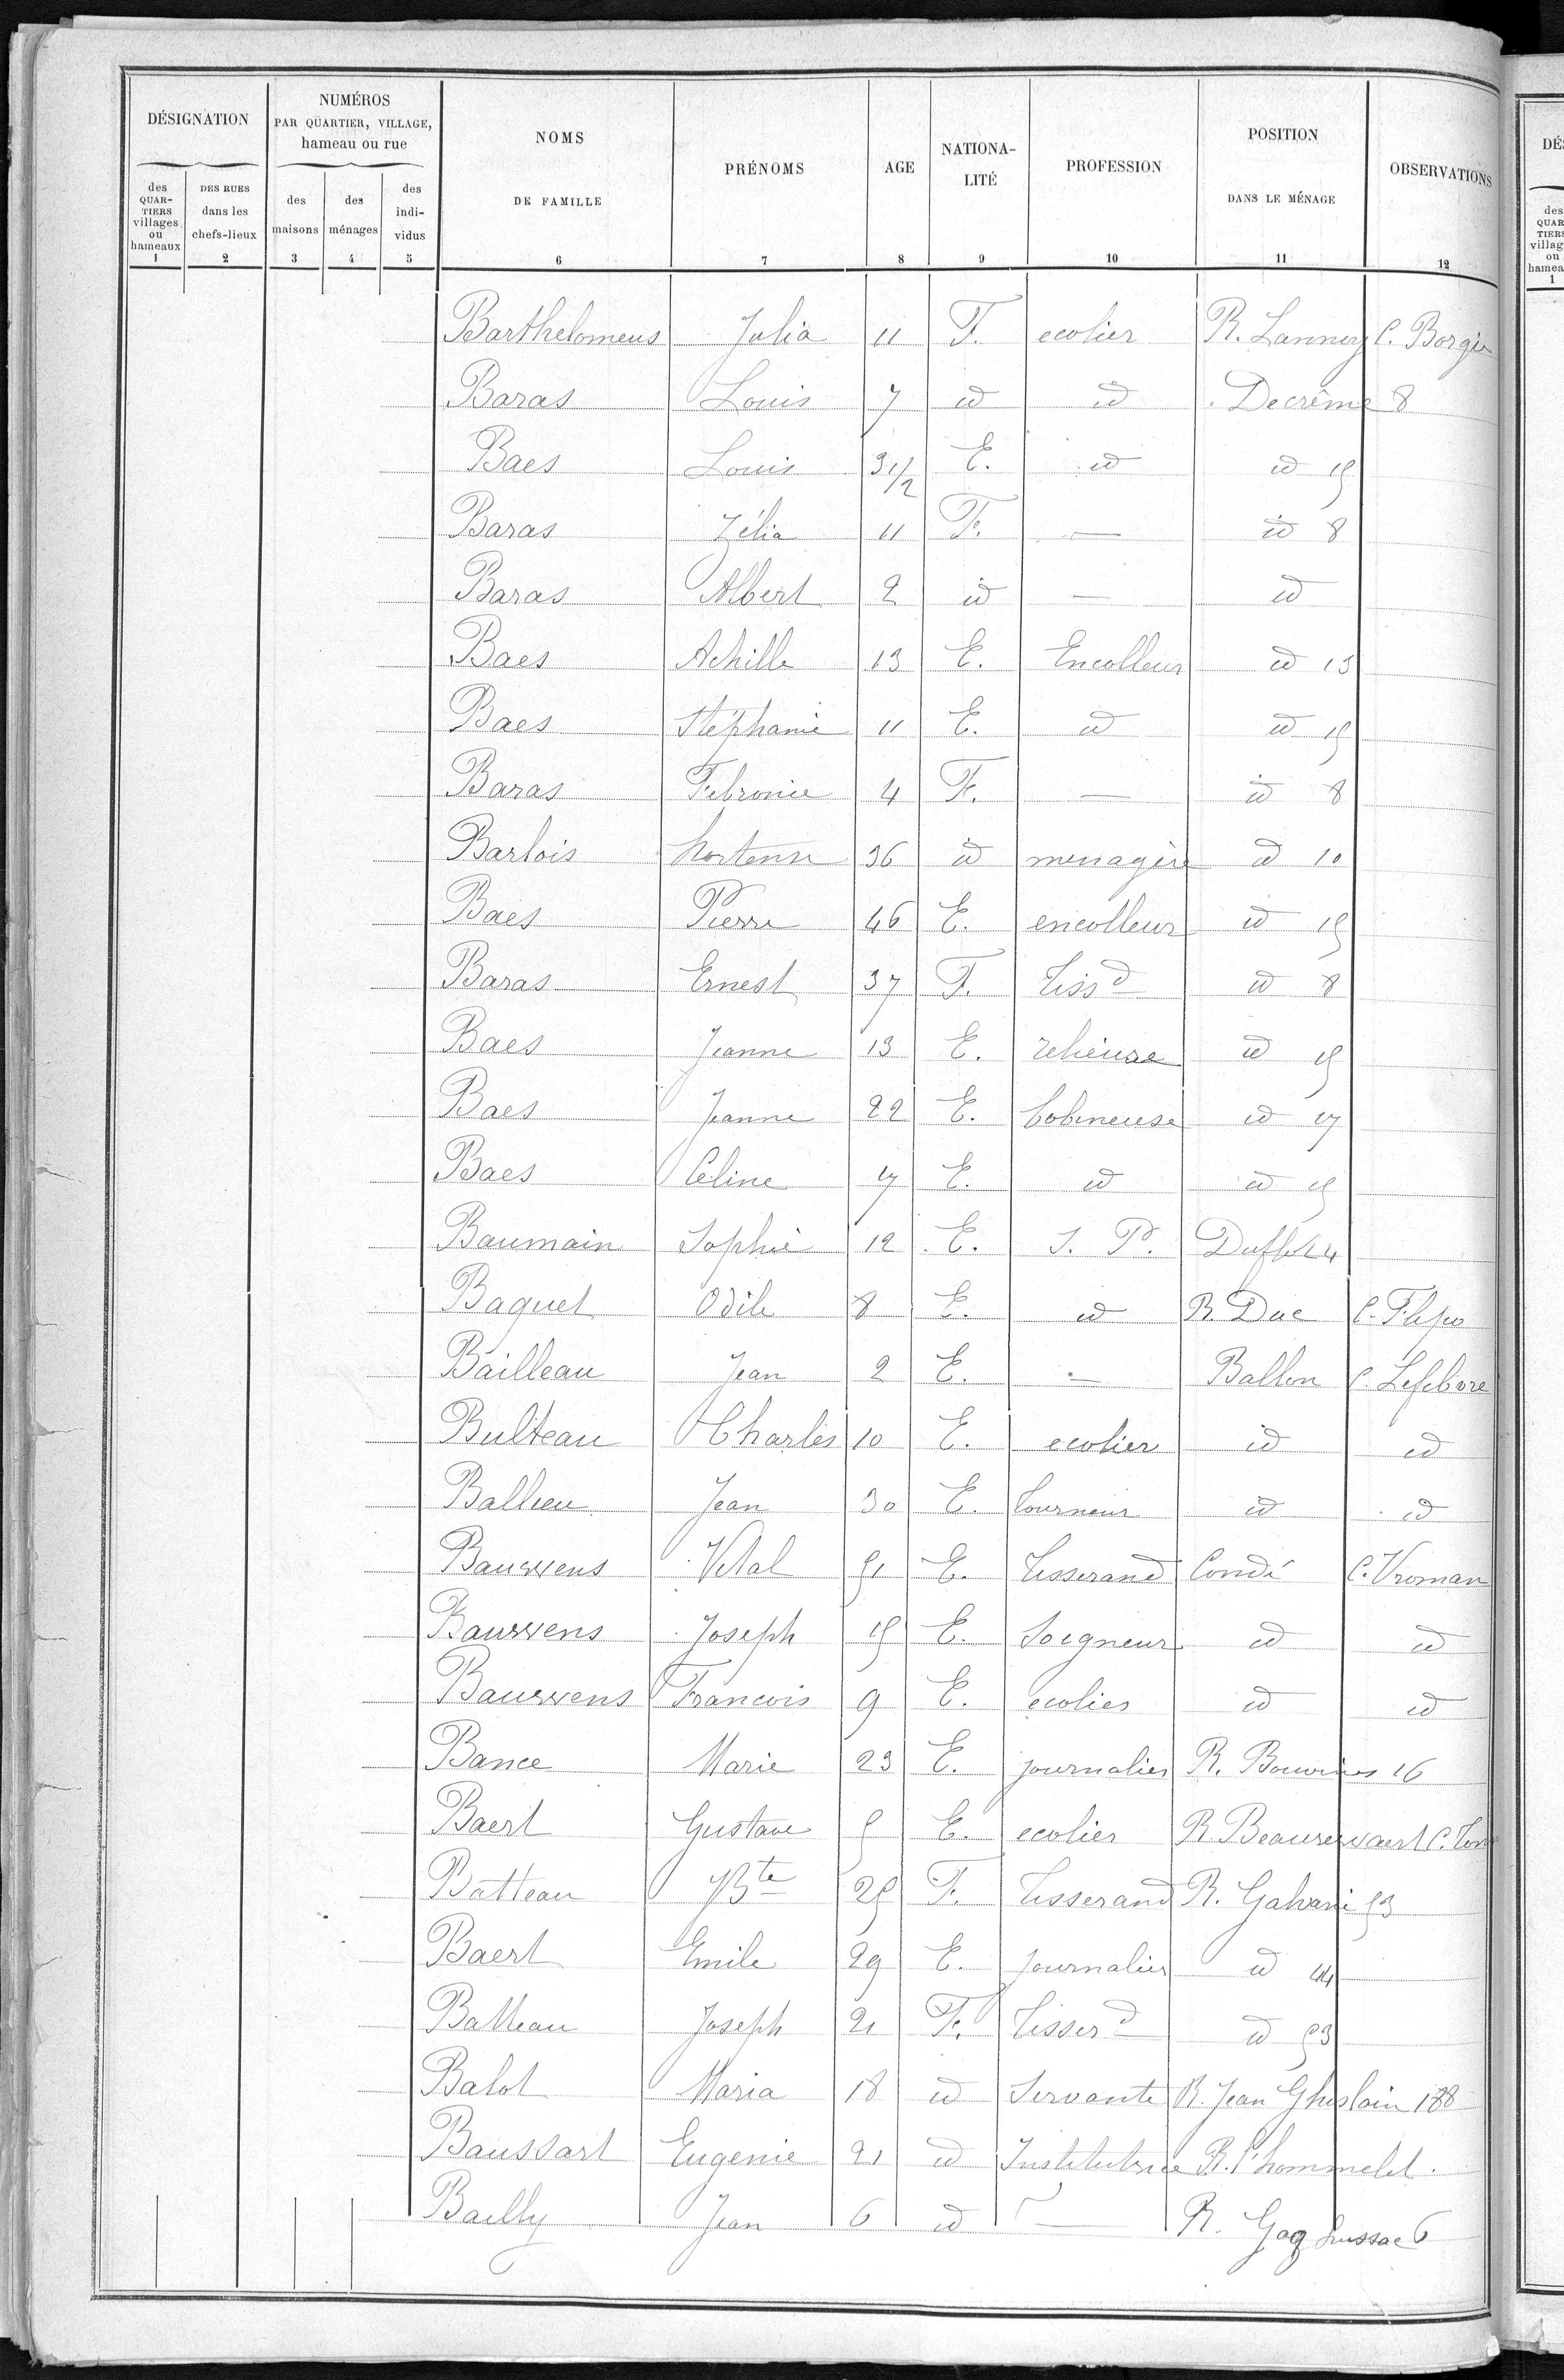 DÉSIGNATION
des QUARTIERS villages ou hameaux
DES RUES dans les chefs-lieux
NUMÉROS PAR QUARTIER, VILLAGE, hameau ou rue
des maisons
des ménages
des individus
NOMS DE FAMILLE
PRÉNOMS
AGE
NATIONALITÉ
PROFESSION
POSITION DANS LE MÉNAGE
OBSERVATIONS
1 2 3 4 5 6 7 8 9 10 11 12
Barthelomeus Julia 11 F. ecolier R. Lannoy C. Borgie
Baras Louis 7 id id Decrême 8
Baes Louis 3 1/2 E. id id 15
Baras Zélia 11 F. — id 8
Baras Albert 2 id — id
Baes Achille 13 E. Encolleur id 15
Baes Stéphanie 11 E. id id 15
Baras Febronie 4 F. — id 8
Barlois hortense 36 id menagère id 10
Baes Pierre 46 E. encolleur id 15
Baras Ernest 37 F. Tissd id 8
Baes Jeanne 13 E. relieuse id 15
Baes Jeanne 22 E. bobineuse id 17
Baes Celine 17 E. id id 15
Baumain Sophie 12 E. S. P. Duflot 4
Baquet Odile 8 E. id R. Duc C. Flipo
Bailleau Jean 2 E. — Ballon C. Lefebvre
Bulteau Charles 10 E. ecolier id id
Ballieu Jean 30 E. tourneur id id
Bauwens Vital 51 E. Tisserand Condé C. Vroman
Bauwens Joseph 15 E. Soigneur id id
Bauwens Francois 9 E. ecolier id id
Bance Marie 23 E. journalier R. Bouvines 16
Baert Gustave 5 E. ecolier R. Beaurewaert C.
Batteau Bte 25 F. Tisserand R. Galvani 53
Baert Emile 29 E. journalier id 44
Batteau Joseph 21 F. Tisserd id 53
Balot Maria 18 id Servante R. Jean Ghislain 188
Baussart Eugenie 21 id Institutrice R. l'hommelet.
Bailly Jean 6 id — R. Gay Lussac 6
DÉS
des QUAR TIERS villag ou hamea
1